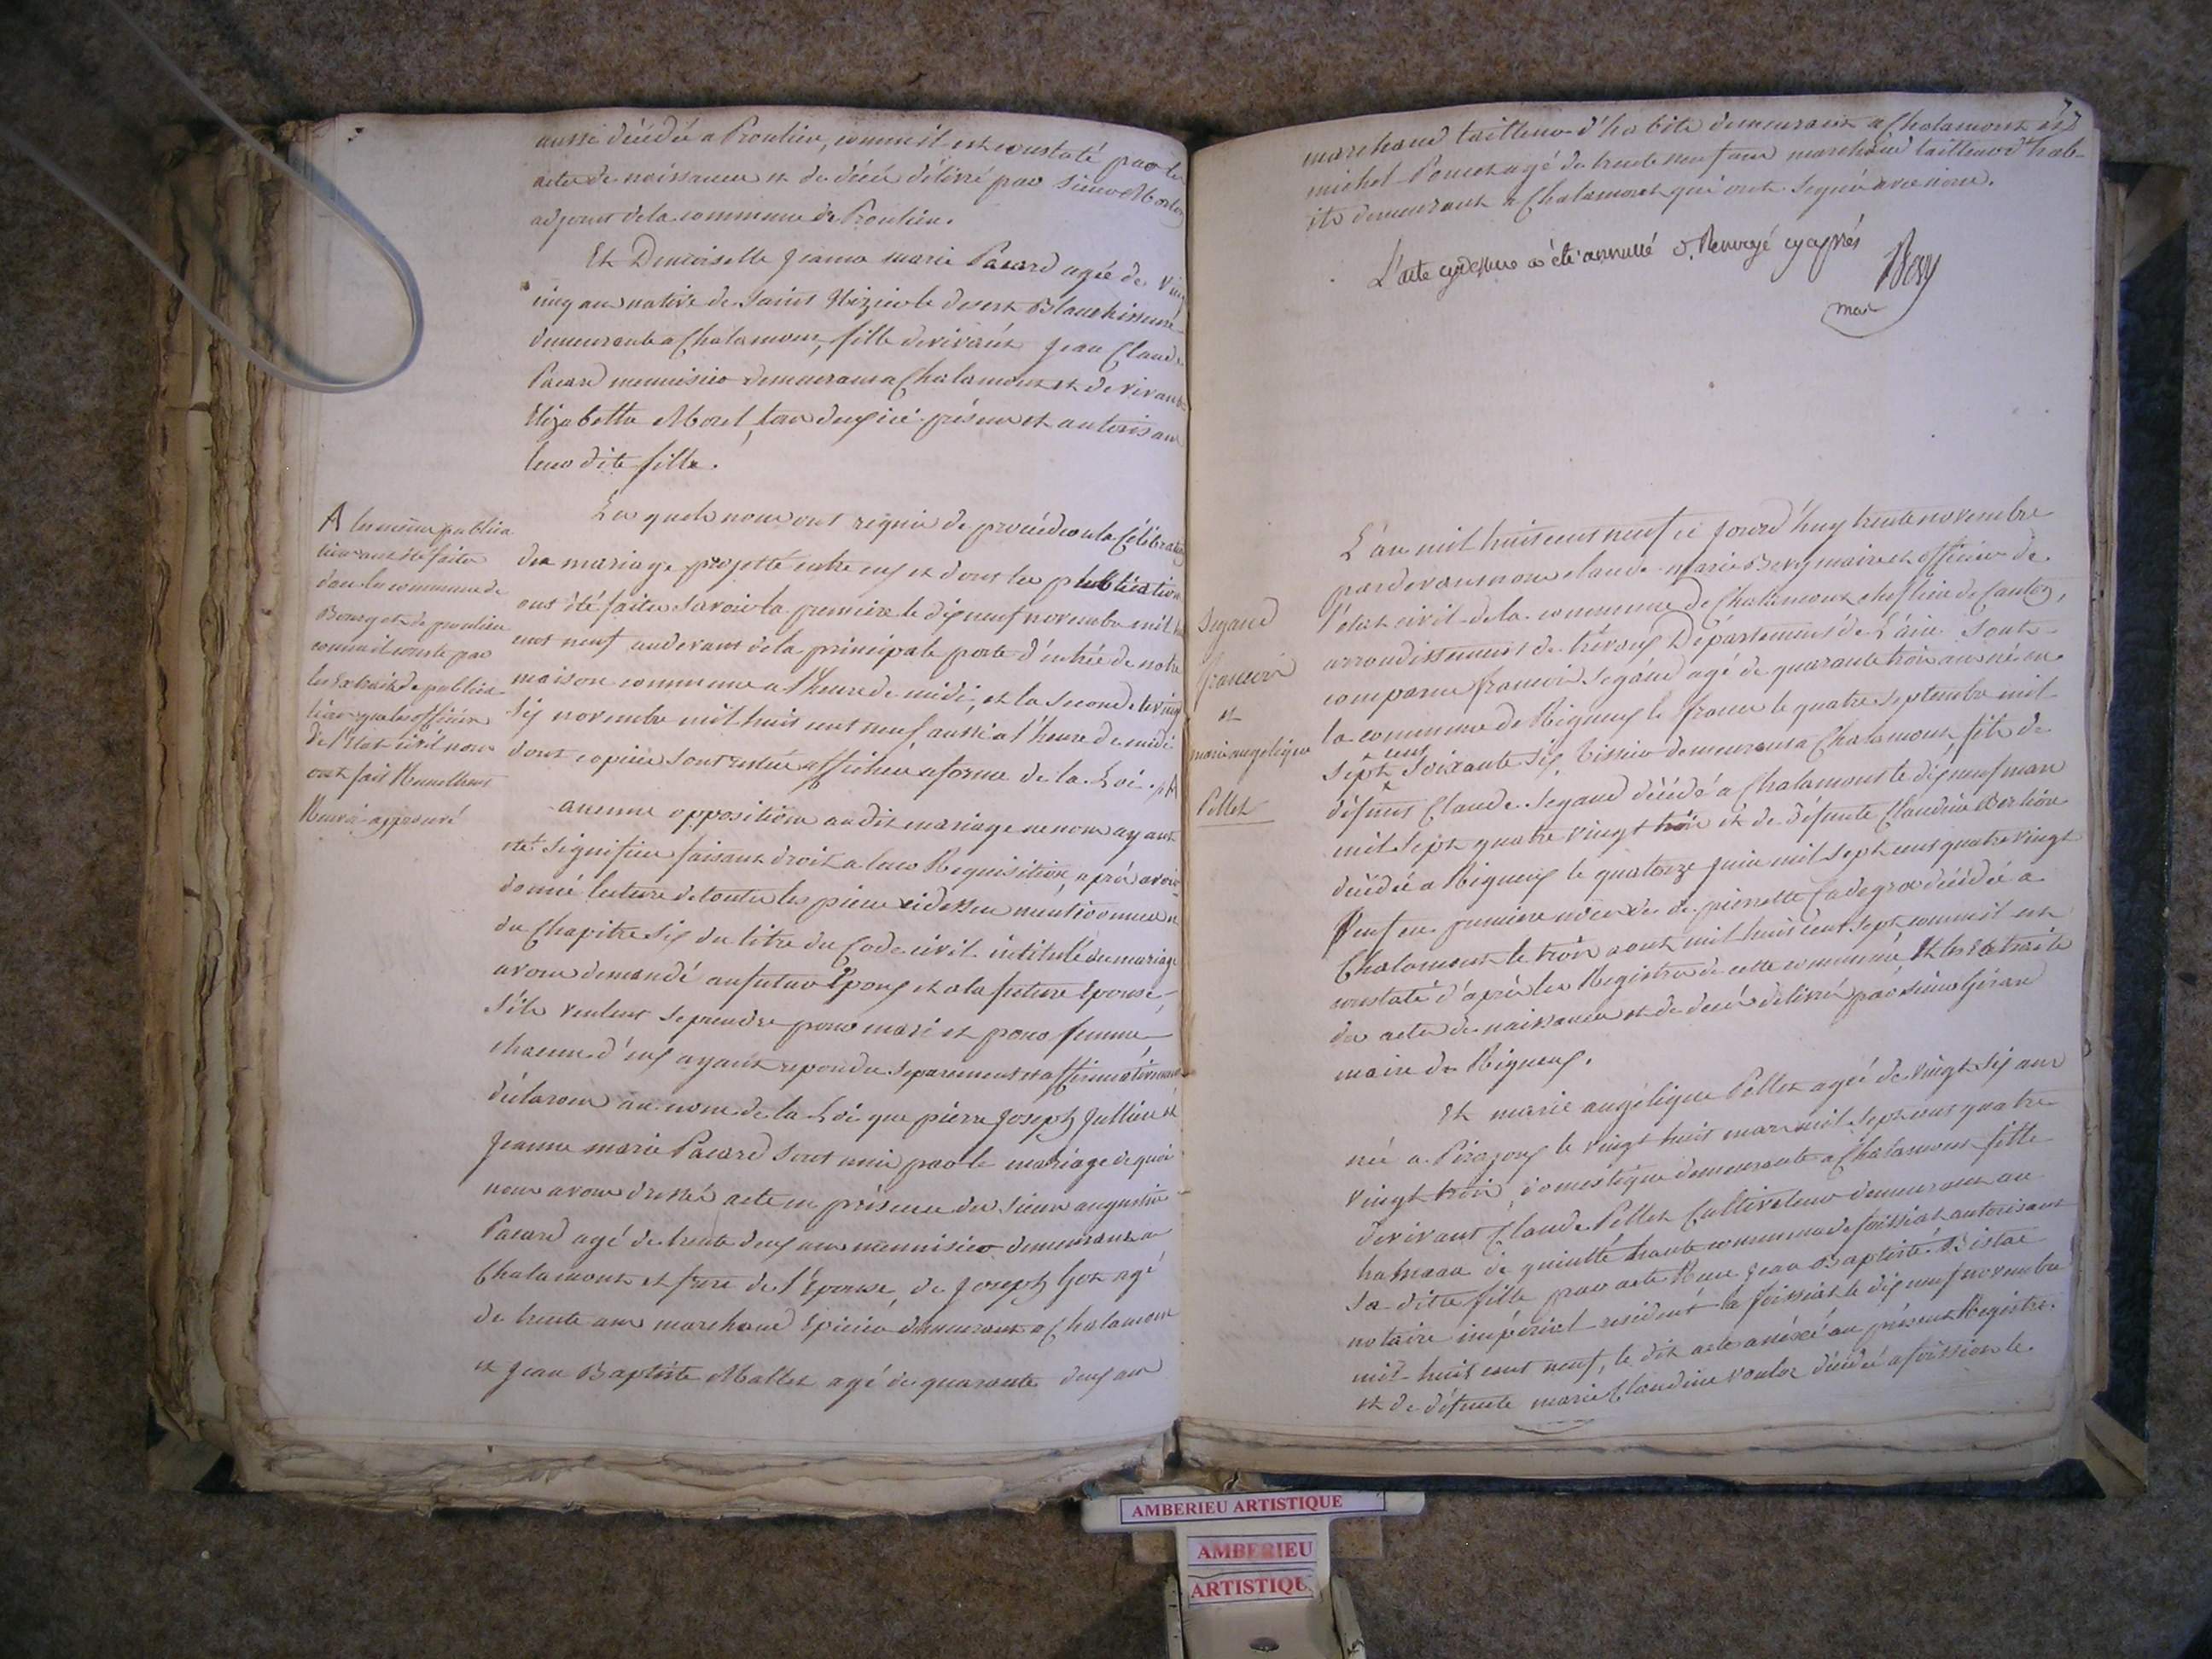 aussi décédée a Proulieu, comme il est constaté par les
actes de naissance et de décé délivré par sieur
adjoint de la commune de Proulieu.
Et Demoiselle Jeanne marie Pacard agée de vingt
cinq ans native de Saint Nizier le desert Blanchisseuse
demeurante a Chalamont, fille de vivant Jean Claude
Pacard menuisier demeurant a Chalamont et de vivante
Elizabette Morel, tous deux ici présent et autorisant
leur dite fille.
Les quels nous ont requis de procéder a la Célébration
du mariage projetté entre eux et dont les publication
ont été faites Savoir la premiere le dix neuf novembre mil
cent neuf audevant de la principale porte d'entrée de notre
maison commune a l'heure de midi, et la seconde le vingt
six novembre mil huit cent neuf aussi a l'heure de midi
dont copies sont restées affichées a forme de la Loi.
A les mêmes publica
tions ont été faites
dans la commune de
Bourg et de proulieu
comme il conste par
les Extrait de publica
tion que les officiers
de l'Etat civil nous
ont fait
approuvé
aucune opposition audit mariage ne nous ayant
été signifiée faisant droit a leur Requisition, après avoir
donné lecture de toutes les pieces cidessus mentionnées et
du Chapitre six du titre du Code civil intitulé du mariage
avons demandé au futur Epoux et a la future Epouse
s'ils veulent se prendre pour mari et pour femme
chacun d'eux ayant repondu separement et affirmativement
déclarons au nom de la Loi que pierre Joseph Jullien et
Jeanne marie Pacard sont unis par le mariage de quoi
nous avons dressé acte en présence des sieurs augustin
Pacard agé de trente deux ans menuisier demeurant a
Chalamont et frere de l'Epouse, de Joseph Got agé
de trente ans marchand Epicier demeurant a Chalamont
et Jean Baptiste Mallet agé de quarante deux ans
marchand tailleur d'habits demeurant a Chalamont et
michel Poncet agé de trente neuf ans marchand tailleur d'hab
its demeurant a Chalamont qui ont signé avec nous.
L'acte cydessus a été annullé & Renvoyé cyaprès
Bevy
mai
Segaud
francois
et
marie angélique
Pellet
L'an mil huit cent neuf ce jourd'huy trente novembre
pardevant nous claude marie Bevy maire et officier de
l'état civil de la commune de Chalamont cheflieu de Canton,
arrondissement de trévoux Département de L'ain Sont
comparus francois Segaud agé de quarante trois ans né en
la commune de Rigneux le franc le quatre septembre mil
sept cent soixante six, tissier demeurant a Chalamont, fils de
défunt Claude Segaud décédé a Chalamont le dix neuf mars
mil sept quatre vingt trois et de défunte Claudine Berlion
décédée a Rigneux le quatorze juin mil sept cent quatre vingt
veuf en premiere noces de pierrette Cadegros décédée a
Chalamont le trois aout mil huit cent sept comme il est
constaté d'après les Registres de cette commune Et les Extraits
des actes de naissances et de decés délivrés par sieur Girard
maire de Rigneux.
Et marie angélique Pellet agée de vingt six ans
née a Pirajoux le vingt huit mars mil sept cent quatre
vingt trois, domestique demeurante a Chalamont fille
de vivant Claude Pellet Cultivateur demeurant au
hameau de quinte haute commune de foissiat autorisant
sa ditte fille par acte Recu Jean Baptiste
notaire impérial resident a foissiat le dix neuf novembre
mil huit cent neuf, le dit acte anéxé au présent Registre.
et de défunte marie Claudine décédée a foission le
AMBERIEU ARTISTIQUE
AMBERIEU
ARTISTIQU